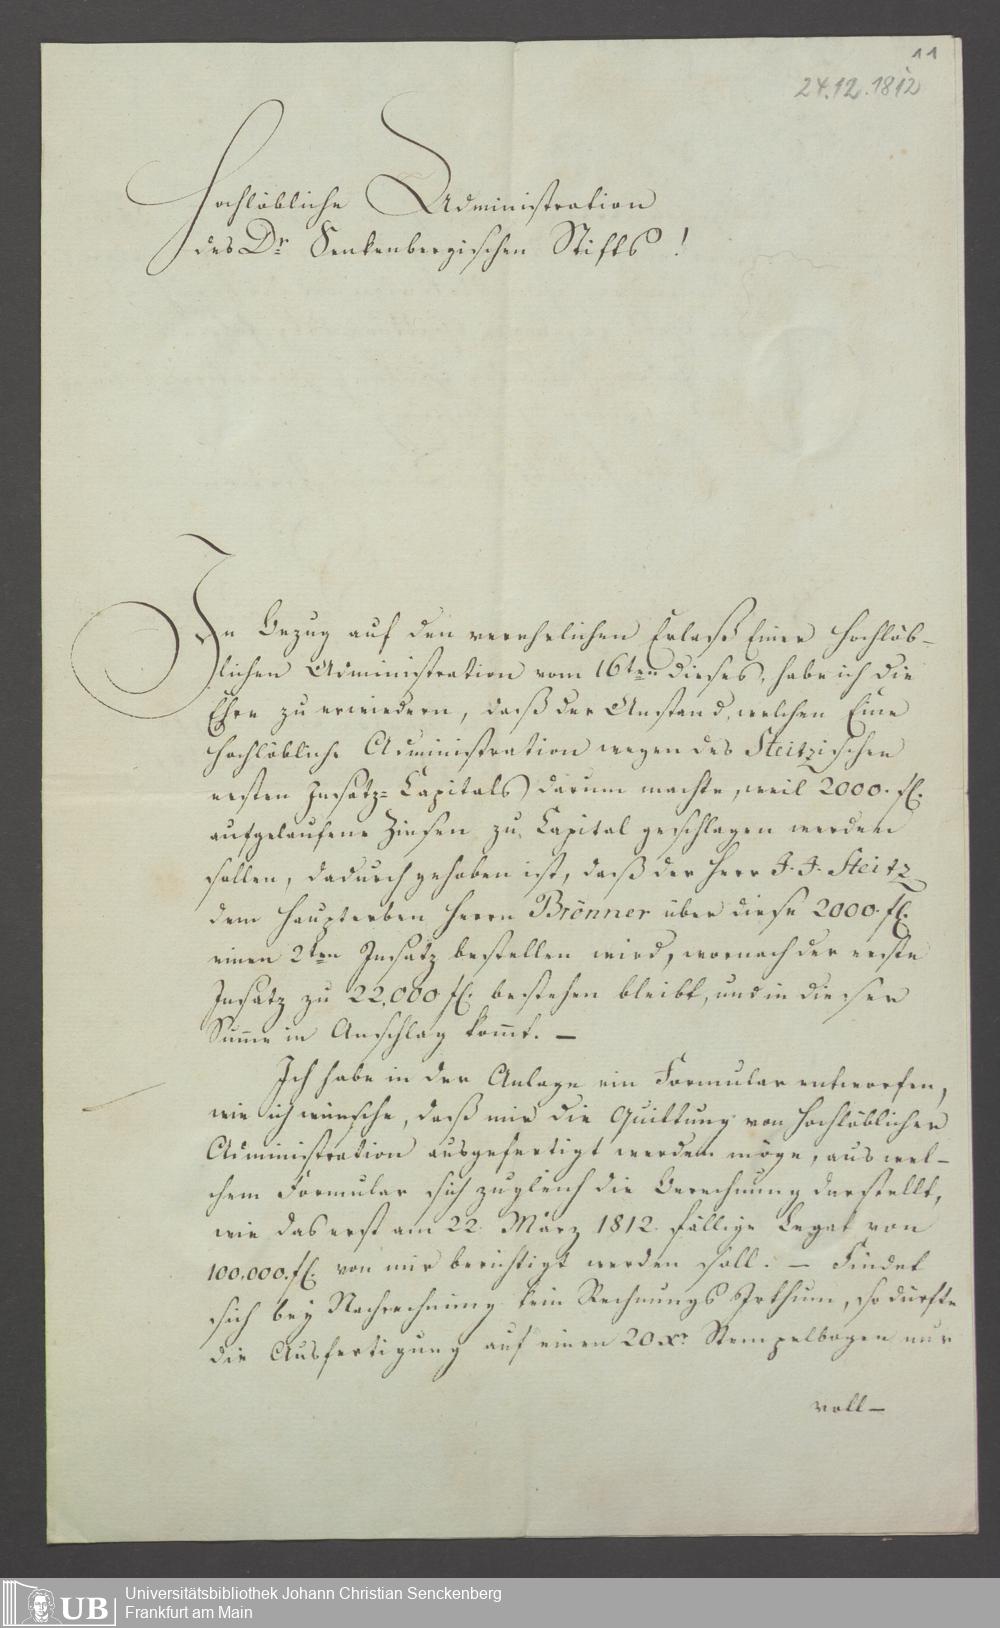 11
24.12.1812
Hochlöbliche Administration
des Dr Senkenbergischen Stifts!
In Bezug auf den verehrlichen Erlaß Einer Hochlöb-
lichen Administration vom 16ten dieses, habe ich die
Ehre zu erwiedern, daß der Anstand, welchen Eine
Hochlöbliche Administration wegen des Steitzischen
ersten Insatz-Capitals darum machte, weil 2000. fl.
aufgelaufene Zinsen zu Capital geschlagen werden
sollen, dadurch gehoben ist, daß der Herr J. J. Steitz
dem Haupterben Herrn Brönner über diese 2000. fl.
einen 2ten Insatz bestellen wird, wornach der erste
Insatz zu 22,000 fl. bestehen bleibt, und in dieser
Sum̄e in Anschlag kom̄t. —
Ich habe in der Anlage ein Formular entworfen,
wie ich wünsche, daß mir die Quittung von Hochlöblicher
Administration ausgefertigt werden möge, aus wel-
chem Formular sich zugleich die Berechnung darstellt,
wie das erst am 22. März 1812. fällige Legat von
100,000. fl. von mir berichtigt werden soll. — Findet
sich bey Nachrechnung kein Rechnungs Irthum, so dürfte
die Ausfertigung auf einen 20. Xr Stempelbogen nur
voll-
UB
Universitätsbibliothek Johann Christian Senckenberg
Frankfurt am Main